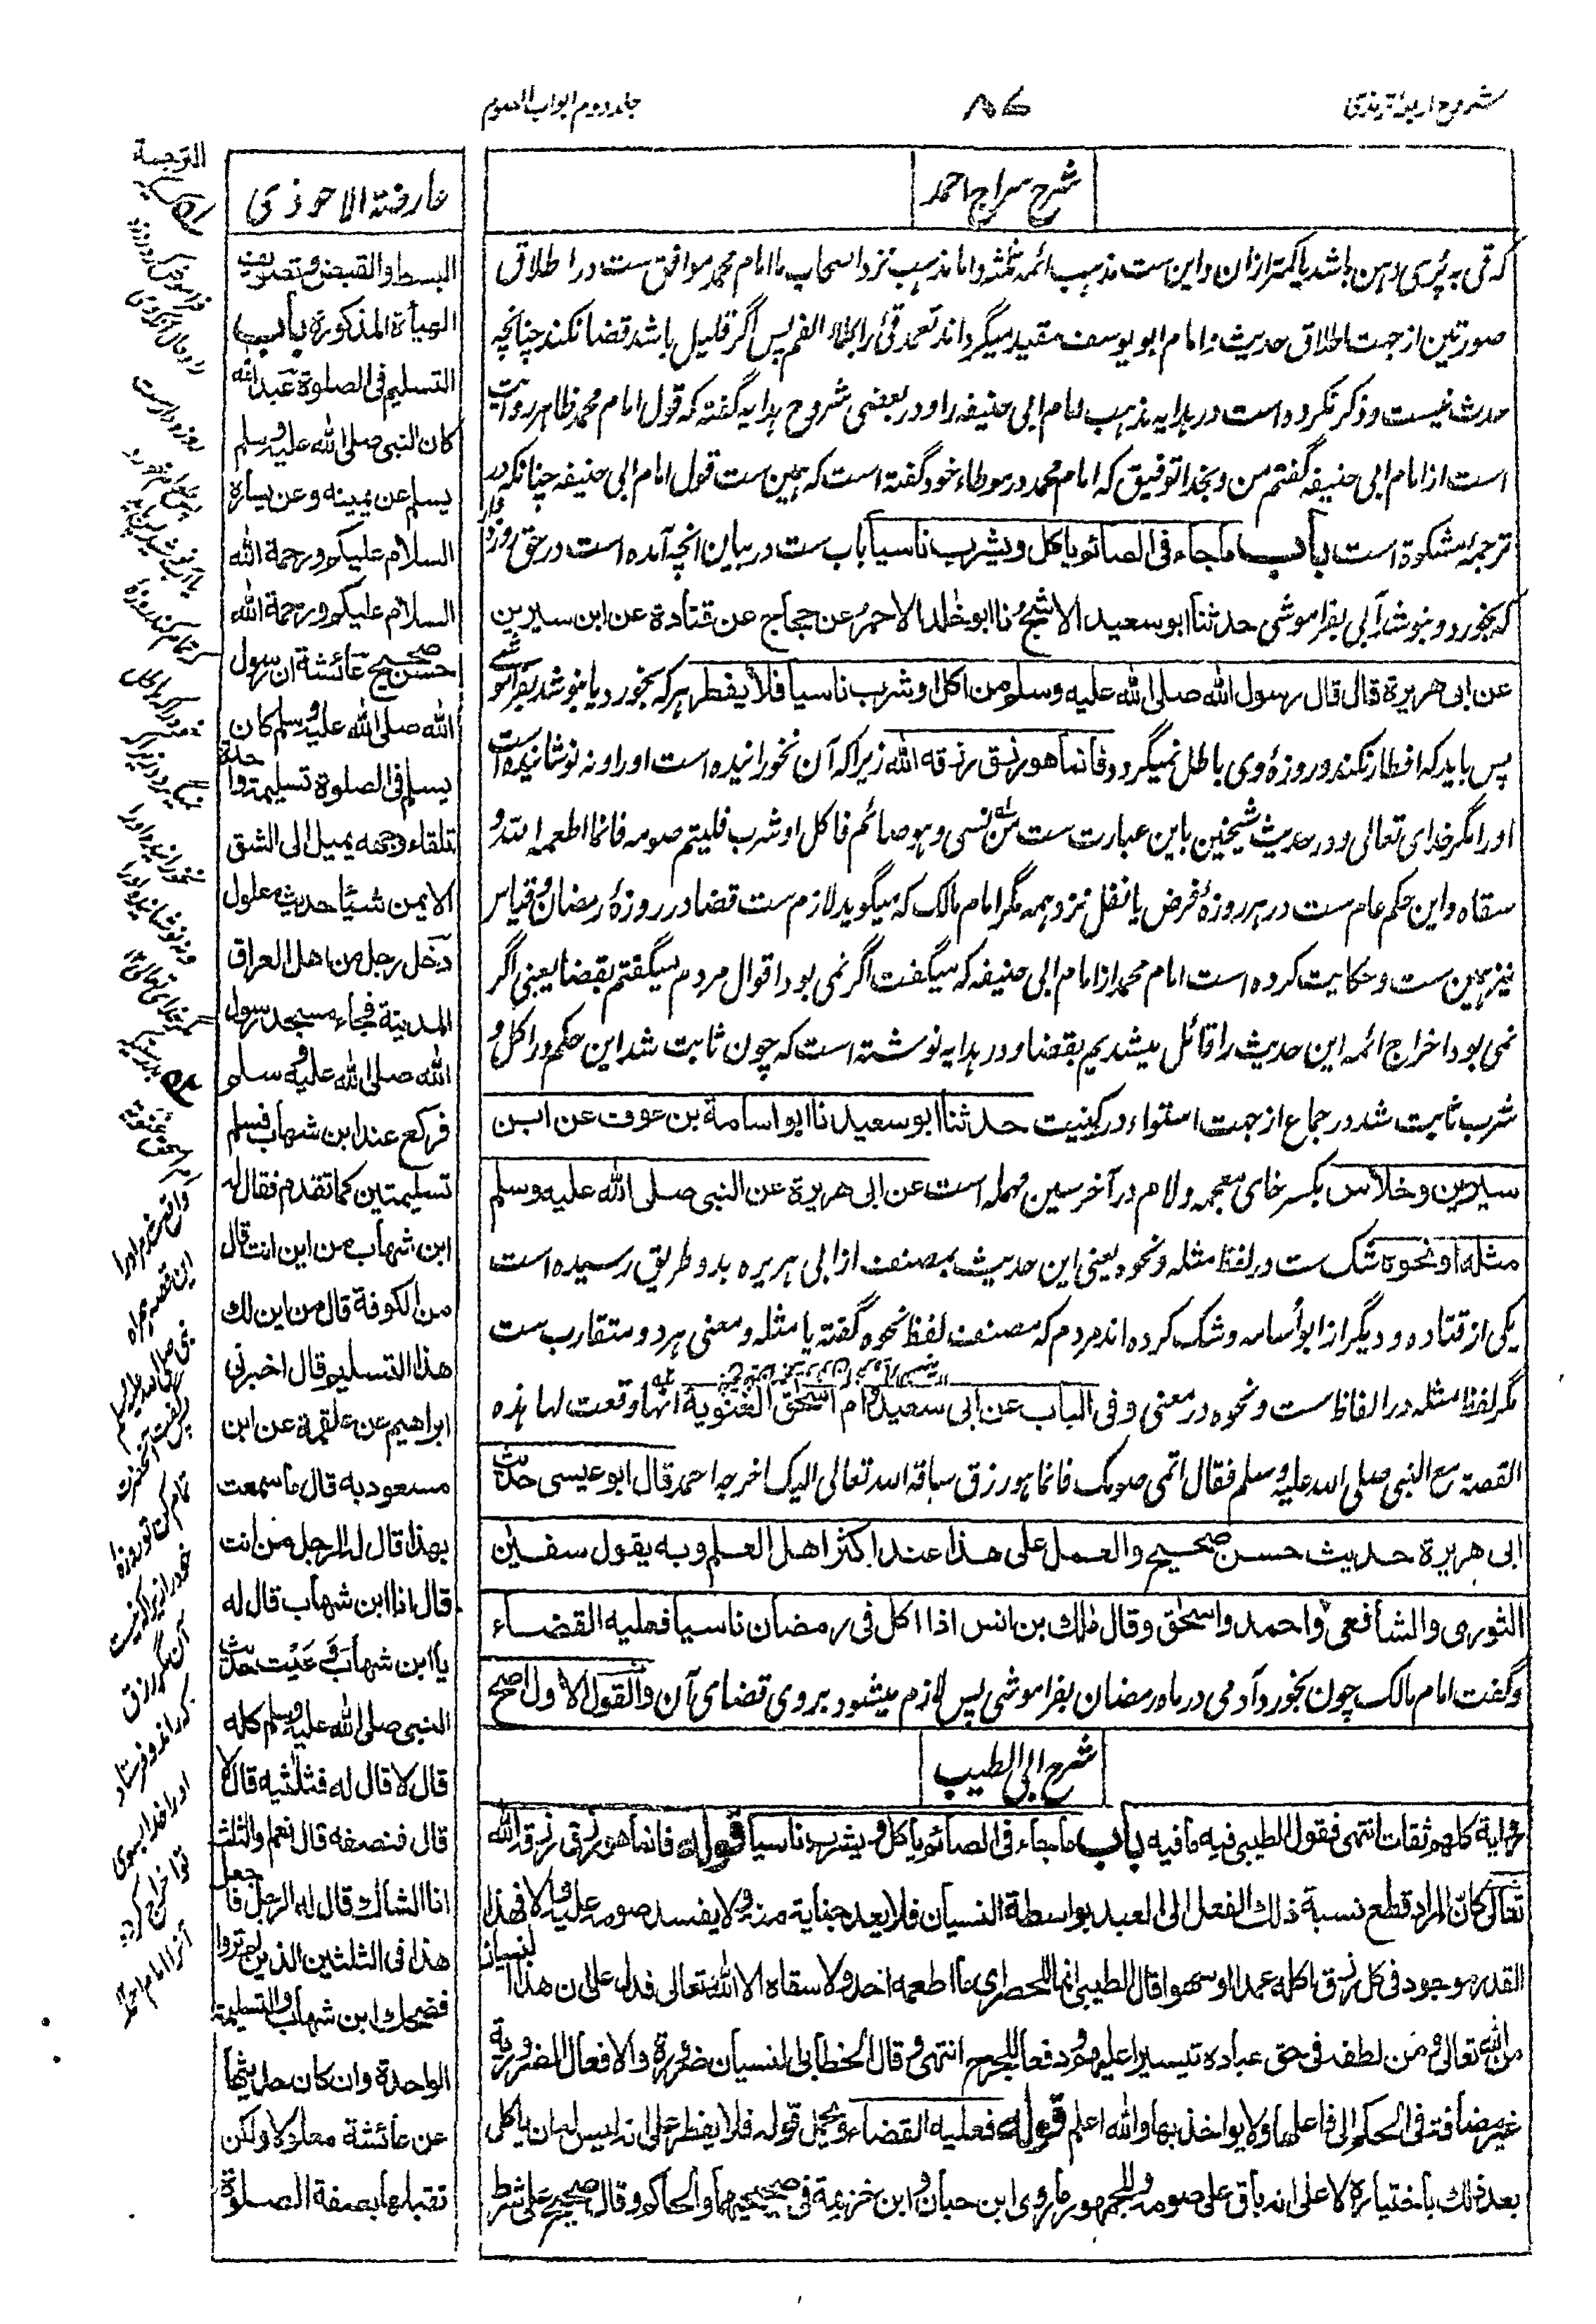 شروح اربعه ترمذی
۸۷
جلد دوم ابواب الصوم
شرح سراج احمد
که قی به پری دهن باشد یا کمتر ازان و این ست مذهب ائمه ثلثه و اما مذهب نزد اصحاب ما امام محمد موافق ست در اطلاق
صورتین از جهت اطلاق حدیث و امام ابو یوسف مقید میگرداند تعمد قئ را بملاء الفم پس اگر قلیل باشد قضا نکند چنانچه
حدث نیست و ذکر نکرده است در هدایه مذهب امام ابی حنیفه را و در بعضی شروح هدایه گفته که قول امام محمد ظاهر روایت
است از امام ابی حنیفه گفتم من و بخدا توفیق که امام محمد در موطاء خود گفته است که همین ست قول امام ابی حنیفه چنانکه در
ترجمهٔ مشکوة است باب ما جاء فی الصائم یاکل و یشرب ناسیا باب ست در بیان انچه آمده است در حق روزه دار
که بخورد و بنوشد آبی بفراموشی حدثنا ابو سعید الاشج نا ابو خالد الاحمر عن حجاج عن قتادة عن ابن سیرین
عن ابی هریرة قال قال رسول الله صلی الله علیه وسلم من اکل او شرب ناسیا فلا یفطر هر که بخورد یا بنوشد بفراموشی
پس باید که افطار نکند و روزهٔ وی باطل نمیگردد فانما هو رزق رزقه الله زیرا که آن نخورانیده است او را و نه نوشانیده است
او را مگر خدای تعالی و در حدیث شیخین باین عبارت ست من نسی و هو صائم فاکل او شرب فلیتم صومه فانما اطعمه الله و
سقاه و این حکم عام ست در هر روزهٔ فرض یا نفل نزد همه مگر امام مالک که میگوید لازم ست قضا در روزهٔ رمضان و قیاس
نیز همین ست و حکایت کرده است امام محمد از امام ابی حنیفه که میگفت اگر نمی بود اقوال مردم میگفتم بقضا یعنی اگر
نمی بود اخراج ائمه این حدیث را قائل میشدیم بقضا و در هدایه نوشته است که چون ثابت شد این حکم در اکل و
شرب ثابت شد در جماع از جهت استواء در رکنیت حدثنا ابو سعید نا ابو اسامة بن عوف عن ابن
سیرین و خلاس بکسر خای معجمه و لام در آخر سین مهمله است عن ابی هریرة عن النبی صلی الله علیه وسلم
مثله او نحوه شک ست در لفظ مثله و نحوه یعنی این حدیث بمصنف از ابی هریره بدو طریق رسیده است
یکی از قتاده و دیگر از ابو أسامه و شک کرده اند مردم که مصنف لفظ نحوه گفته یا مثله و معنی هر دو متقارب ست
مگر لفظ مثله در الفاظ ست و نحوه در معنی و فی الباب عن ابی سعید و ام اسحق الغنویة انها وقعت لها هذه
القصة مع النبی صلی الله علیه وسلم فقال اتمی صومک فانما هو رزق ساقه الله تعالی الیک اخرجه احمد قال ابو عیسی حدیث
ابی هریرة حدیث حسن صحیح والعمل علی هذا عند اکثر اهل العلم و به یقول سفین
الثوری والشافعی و احمد و اسحٰق و قال مٰلك بن انس اذا اکل فی رمضان ناسیا فعلیه القضاء
و گفت امام مالک چون بخورد آدمی در ماه رمضان بفراموشی پس لازم میشود بروی قضای آن والقول الاول اصح
شرح ابی الطیب
كلهم ثقات انتهی فقول الطیبی فیه ما فیه باب ما جاء فی الصائم یاکل و یشرب ناسیا قوله فانما هو رزق رزقه الله
تعالی کان المراد قطع نسبة ذلك الفعل الی العبد بواسطة النسیان فلا یعد جنایة منه ولا یفسد صومه علیه والا فهذا
القدر موجود فی کل رزق یاکله عمدا او سهوا قال الطیبی انما للحصر ای ما اطعمه احد ولا سقاه الا الله تعالی فدل علی ان هذا النسیان
من الله تعالی و من لطفه فی حق عباده تیسیرا علیهم و دفعا للحرج انتهی و قال الخطابی النسیان ضرورة والافعال الضروریة
غیر مضافة فی الحکم الی فاعلها ولا یواخذ بها والله اعلم قوله فعلیه القضاء و یحمل قوله فلا یفطر علی انه لیس له ان یاکل
بعد ذلك باختیاره لا علی انه باق علی صومه وللجمهور ما روی ابن حبان و ابن خزیمة فی صحیحیهما والحاکم و قال صحیح علی شرط
عارضة الاحوذی
البسط والقبض و تصریف
الهیأة المذکورة باب
التسلیم فی الصلوة عبد الله
کان النبی صلی الله علیه وسلم
یسلم عن یمینه و عن یساره
السلام علیکم ورحمة الله
السلام علیکم ورحمة الله
حسن صحیح عائشة ان رسول
الله صلی الله علیه وسلم کان
یسلم فی الصلوة تسلیمة واحدة
تلقاء وجهه یمیل الی الشق
الایمن شیئا حدیث معلول
دخل رجل من اهل العراق
المدینة فجاء مسجد رسول
الله صلی الله علیه وسلم
فرکع عند ابن شهاب فسلم
تسلیمتین کما تقدم فقال له
ابن شهاب من این انت قال
من الکوفة قال من این لك
هذا التسلیم قال اخبرنی
ابراهیم عن علقمة عن ابن
مسعود به قال ما سمعت
بهذا قال له الرجل من انت
قال انا ابن شهاب قال له
یا ابن شهاب وَعَیْت حدیث
النبی صلی الله علیه وسلم کله
قال لا قال له فثلثیه قال لا
قال فنصفه قال نعم والثلث
انا الشاك قال له الرجل فاجعل
هذا فی الثلثین الذین لم تروا
فضحك ابن شهاب والتسلیمة
الواحدة وان کان حدیثها
عن عائشة معلولا ولکن
تقبلها بصفة الصلوة
الترجمة
روزه دار است
واقع شد مر او را
این قصه همراه
نبی صلی الله علیه وسلم
پس گفت آنحضرت
تمام کن تو روزه
خود را زیرا که نیست
آن مگر رزق
که راند و فرستاد
او را خدا بسوی
تو اخراج کرده
آنرا امام احمد